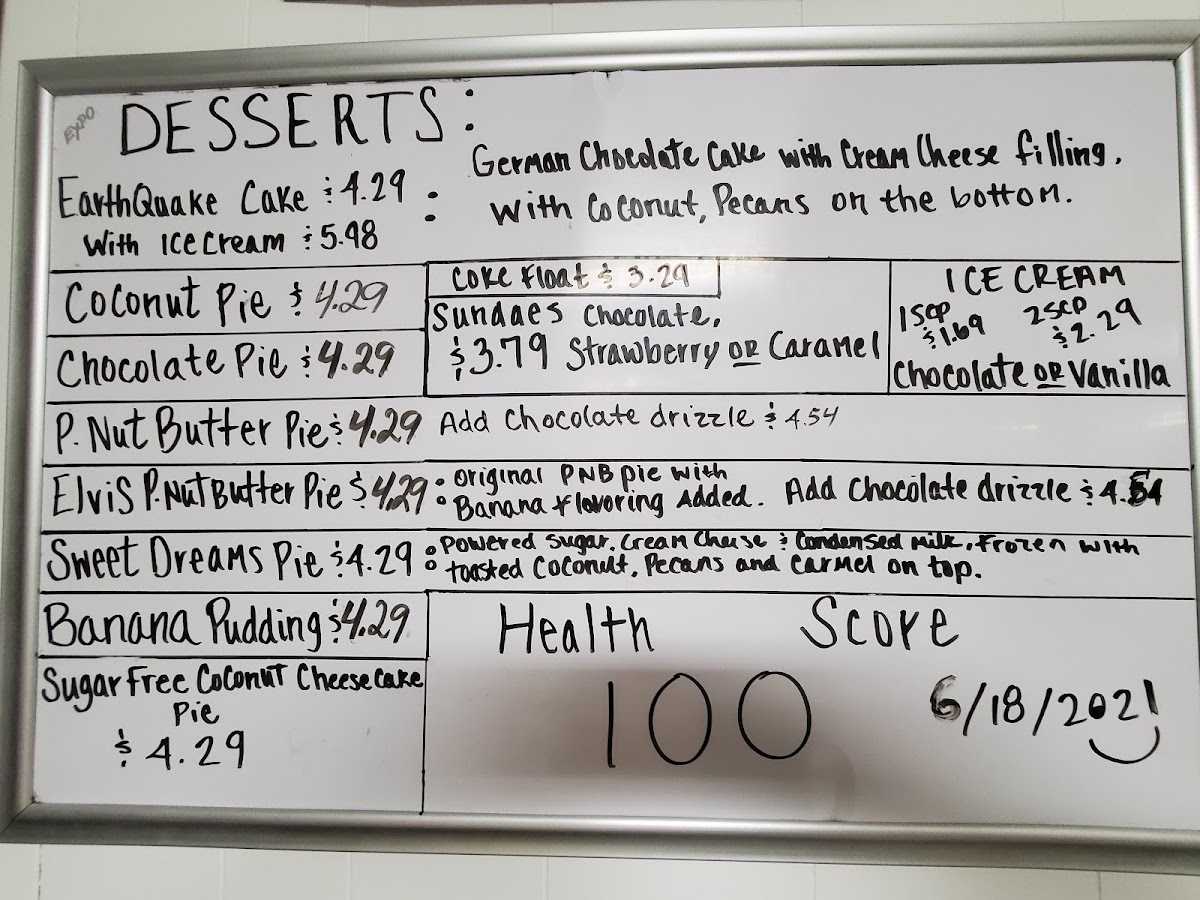 EXPO
DESSERTS:
EarthQuake Cake $4.29 :
With Ice Cream $5.98
German Chocolate Cake with Cream Cheese filling.
with Coconut, Pecans on the bottom.
Coconut Pie $4.29
Chocolate Pie $4.29
Coke Float $3.29
Sundaes Chocolate,
$3.79 Strawberry OR Caramel
ICE CREAM
1 SCP 2 SCP
$1.69 $2.29
Chocolate OR Vanilla
P. Nut Butter Pie $4.29 Add Chocolate drizzle $4.54
Elvis P. Nut Butter Pie $4.29 : Original PNB pie with
Banana flavoring Added. Add Chocolate drizzle $4.54
Sweet Dreams Pie $4.29 : Powered Sugar, Cream Cheese & Condensed Milk, Frozen with
toasted Coconut, Pecans and Carmel on top.
Banana Pudding $4.29
Sugar Free Coconut Cheese Cake
Pie
$4.29
Health Score
100
6/18/2021